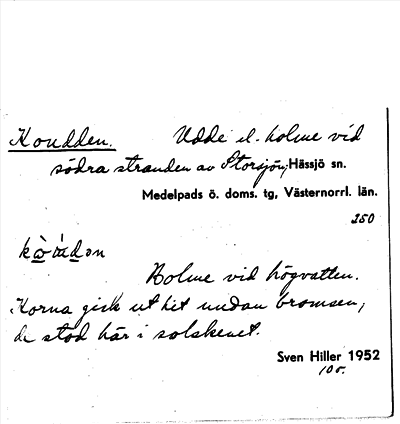 Koudden. Udde el. holme vid
södra stranden av Storsjön, Hässjö sn.
Medelpads ö. doms. tg, Västernorrl. län.
350
Holme vid högvatten.
Korna gick ut hit undan bromsen,
de stod här i solskenet.
Sven Hiller 1952